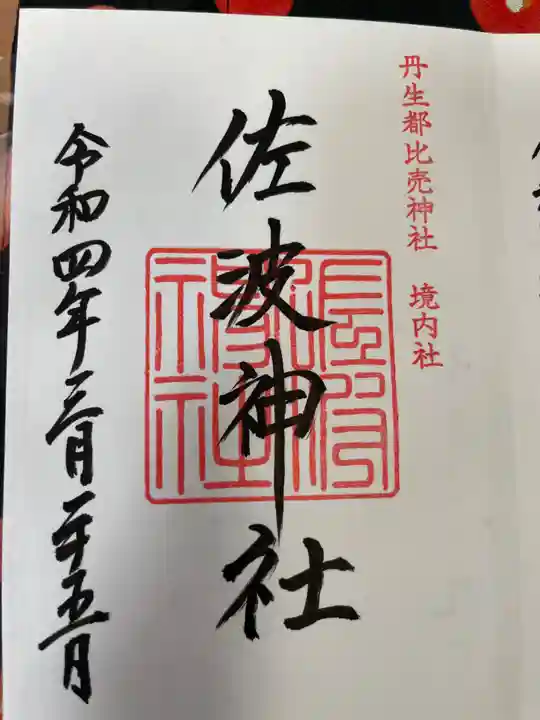 丹生都比売神社 境内社
佐波神社
令和四年三月二十五日